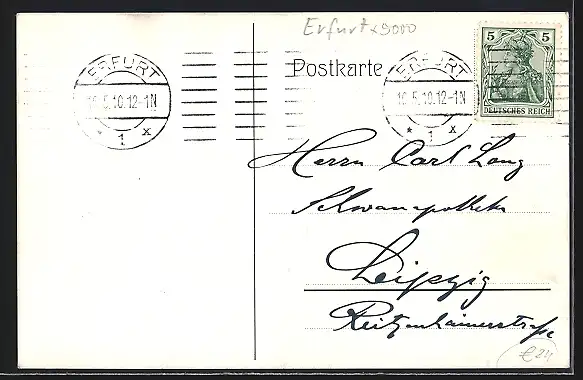 Erfurt x9000
Postkarte
ERFURT
16.5.10.12-1N
* 1 x
ERFURT
16.5.10.12-1N
* 1 x
5 5
DEUTSCHES REICH
Herrn Carl Lang
Schwanapotheke
Leipzig
Reitzenhainerstraße
€24